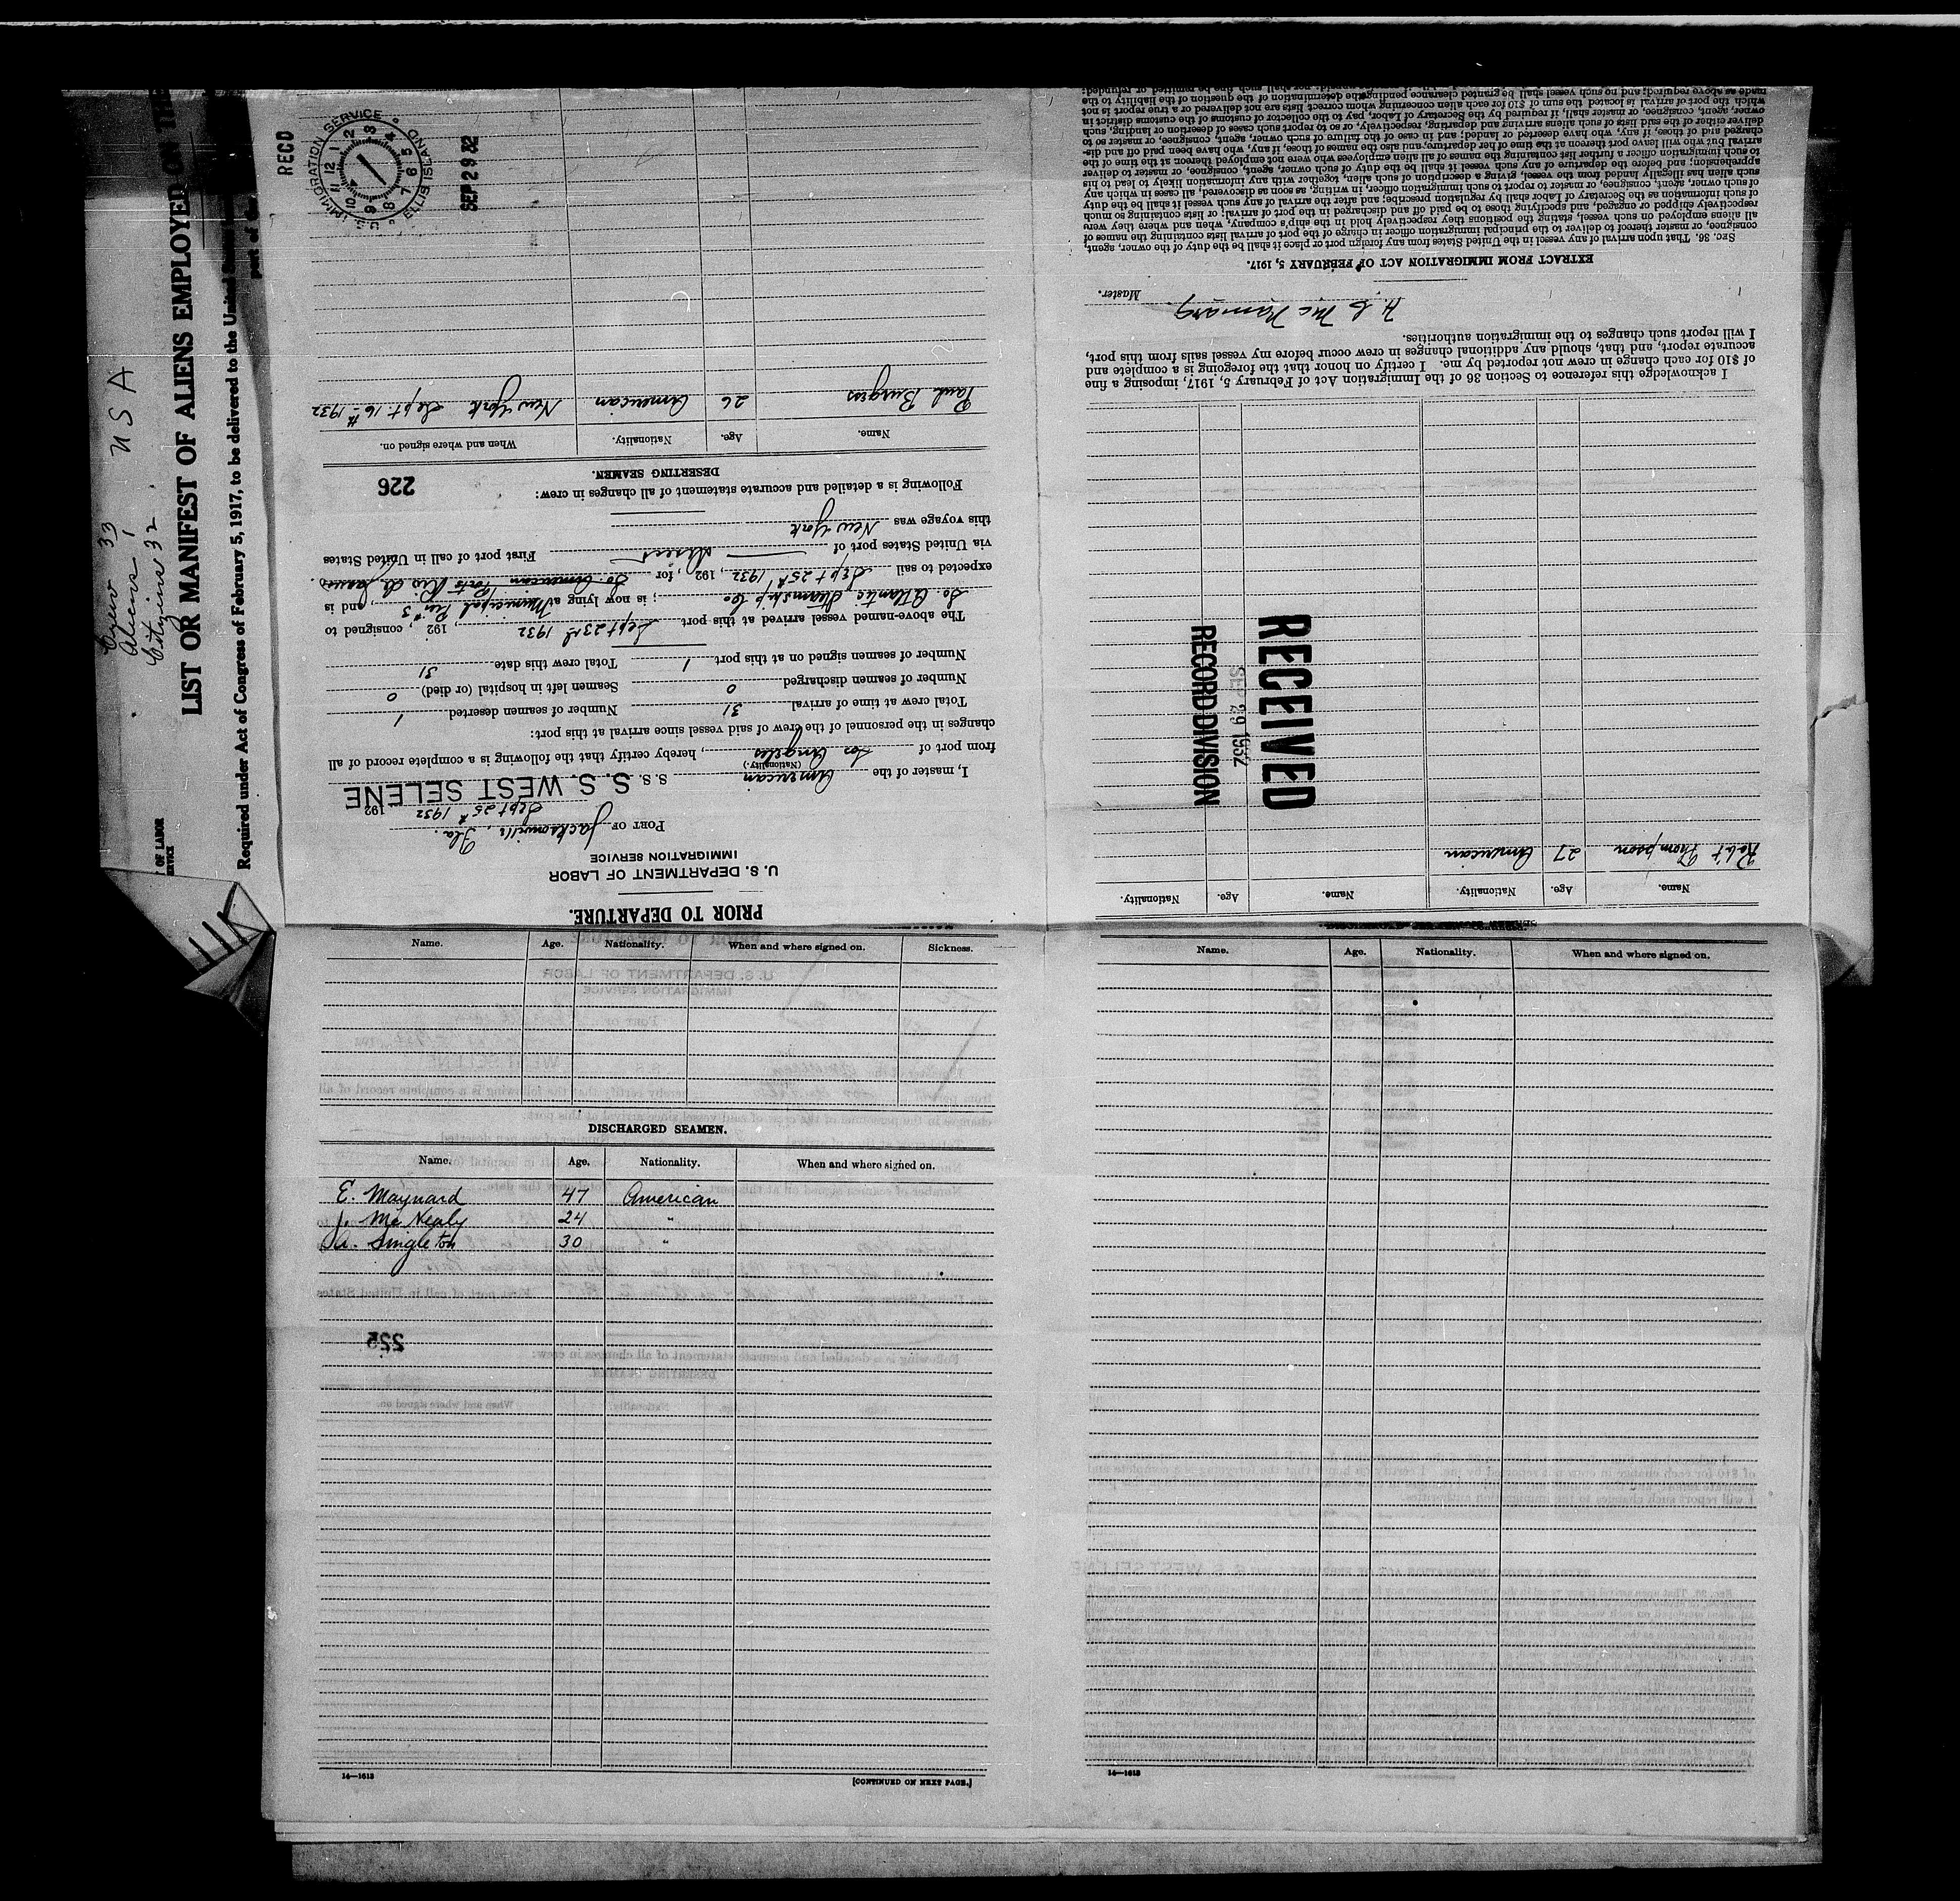 Crew 33 U S A
Aliens 1
Citizens 32
LIST OR MANIFEST OF ALIENS EMPLOYED ON THE
Required under Act of Congress of February 5, 1917, to be delivered to the United
part of the
OF LABOR
SERVICE
PRIOR TO DEPARTURE.
U. S. DEPARTMENT OF LABOR
IMMIGRATION SERVICE
PORT OF Jacksonville, Fla.
Sept 25th 1932 192
I, master of the American S. S. S. S. WEST SELENE
(Nationality.)
from port of Los Angeles, hereby certify that the following is a complete record of all
changes in the personnel of the crew of said vessel since arrival at this port:
Total crew at time of arrival 31 Number of seamen deserted 1
Number of seamen discharged 0 Seamen left in hospital (or died) 0
Number of seamen signed on at this port 1 Total crew this date 31
The above-named vessel arrived at this port Sept 23rd 1932, 192 , consigned to
So. Atlantic Steamship Co. ; is now lying at Municipal Pier #3, and is
expected to sail Sept 25th 1932, 192 , for So. American Ports Rio de Janeiro
via United States port of Direct First port of call in United States
this voyage was New York
Following is a detailed and accurate statement of all changes in crew:
226
DESERTING SEAMEN.
Name. Age. Nationality. When and where signed on.
Paul Burgess 26 American New York Sept 16th 1932
RECD
IMMIGRATION SERVICE
ELLIS ISLAND
SEP 29 32
Name. Age. Nationality. Name. Age. Nationality.
Rob't Thompson 27 American
RECEIVED
SEP 29 1932
RECORD DIVISION
I acknowledge this reference to Section 36 of the Immigration Act of February 5, 1917, imposing a fine
of $10 for each change in crew not reported by me. I certify on honor that the foregoing is a complete and
accurate report, and that, should any additional changes in crew occur before my vessel sails from this port,
I will report such changes to the immigration authorities.
H. C. McNamara
Master.
EXTRACT FROM IMMIGRATION ACT OF FEBRUARY 5, 1917.
SEC. 36. That upon arrival of any vessel in the United States from any foreign port or place it shall be the duty of the owner, agent,
consignee, or master thereof to deliver to the principal immigration officer in charge of the port of arrival lists containing the names of
all aliens employed on such vessel, stating the positions they respectively hold in the ship's company, when and where they were
respectively shipped or engaged, and specifying those to be paid off and discharged in the port of arrival; or lists containing so much
of such information as the Secretary of Labor shall by regulation prescribe; and after the arrival of any such vessel it shall be the duty
of such owner, agent, consignee, or master to report to such immigration officer, in writing, as soon as discovered, all cases in which any
such alien has illegally landed from the vessel, giving a description of such alien, together with any information likely to lead to his
apprehension; and before the departure of any such vessel it shall be the duty of such owner, agent, consignee, or master to deliver
to such immigration officer a further list containing the names of all alien employees who were not employed thereon at the time of the
arrival but who will leave port thereon at the time of her departure; and also the names of those, if any, who have been paid off and dis-
charged and of those, if any, who have deserted or landed; and in case of the failure of such owner, agent, consignee, or master so to
deliver either of the said lists of such aliens arriving and departing, respectively, or so to report such cases of desertion or landing, such
owner, agent, consignee, or master shall, if required by the Secretary of Labor, pay to the collector of customs of the customs district in
which the port of arrival is located the sum of $10 for each alien concerning whom correct lists are not delivered or a true report is not
made as above required; and no such vessel shall be granted clearance pending the determination of the question of the liability to the
Name. Age. Nationality. When and where signed on. Sickness.
DISCHARGED SEAMEN.
Name. Age. Nationality. When and where signed on.
E. Maynard 47 American
J. McNealy 24 "
A. Singleton 30 "
225
14—1613
[CONTINUED ON NEXT PAGE.]
Name. Age. Nationality. When and where signed on.
14—1613